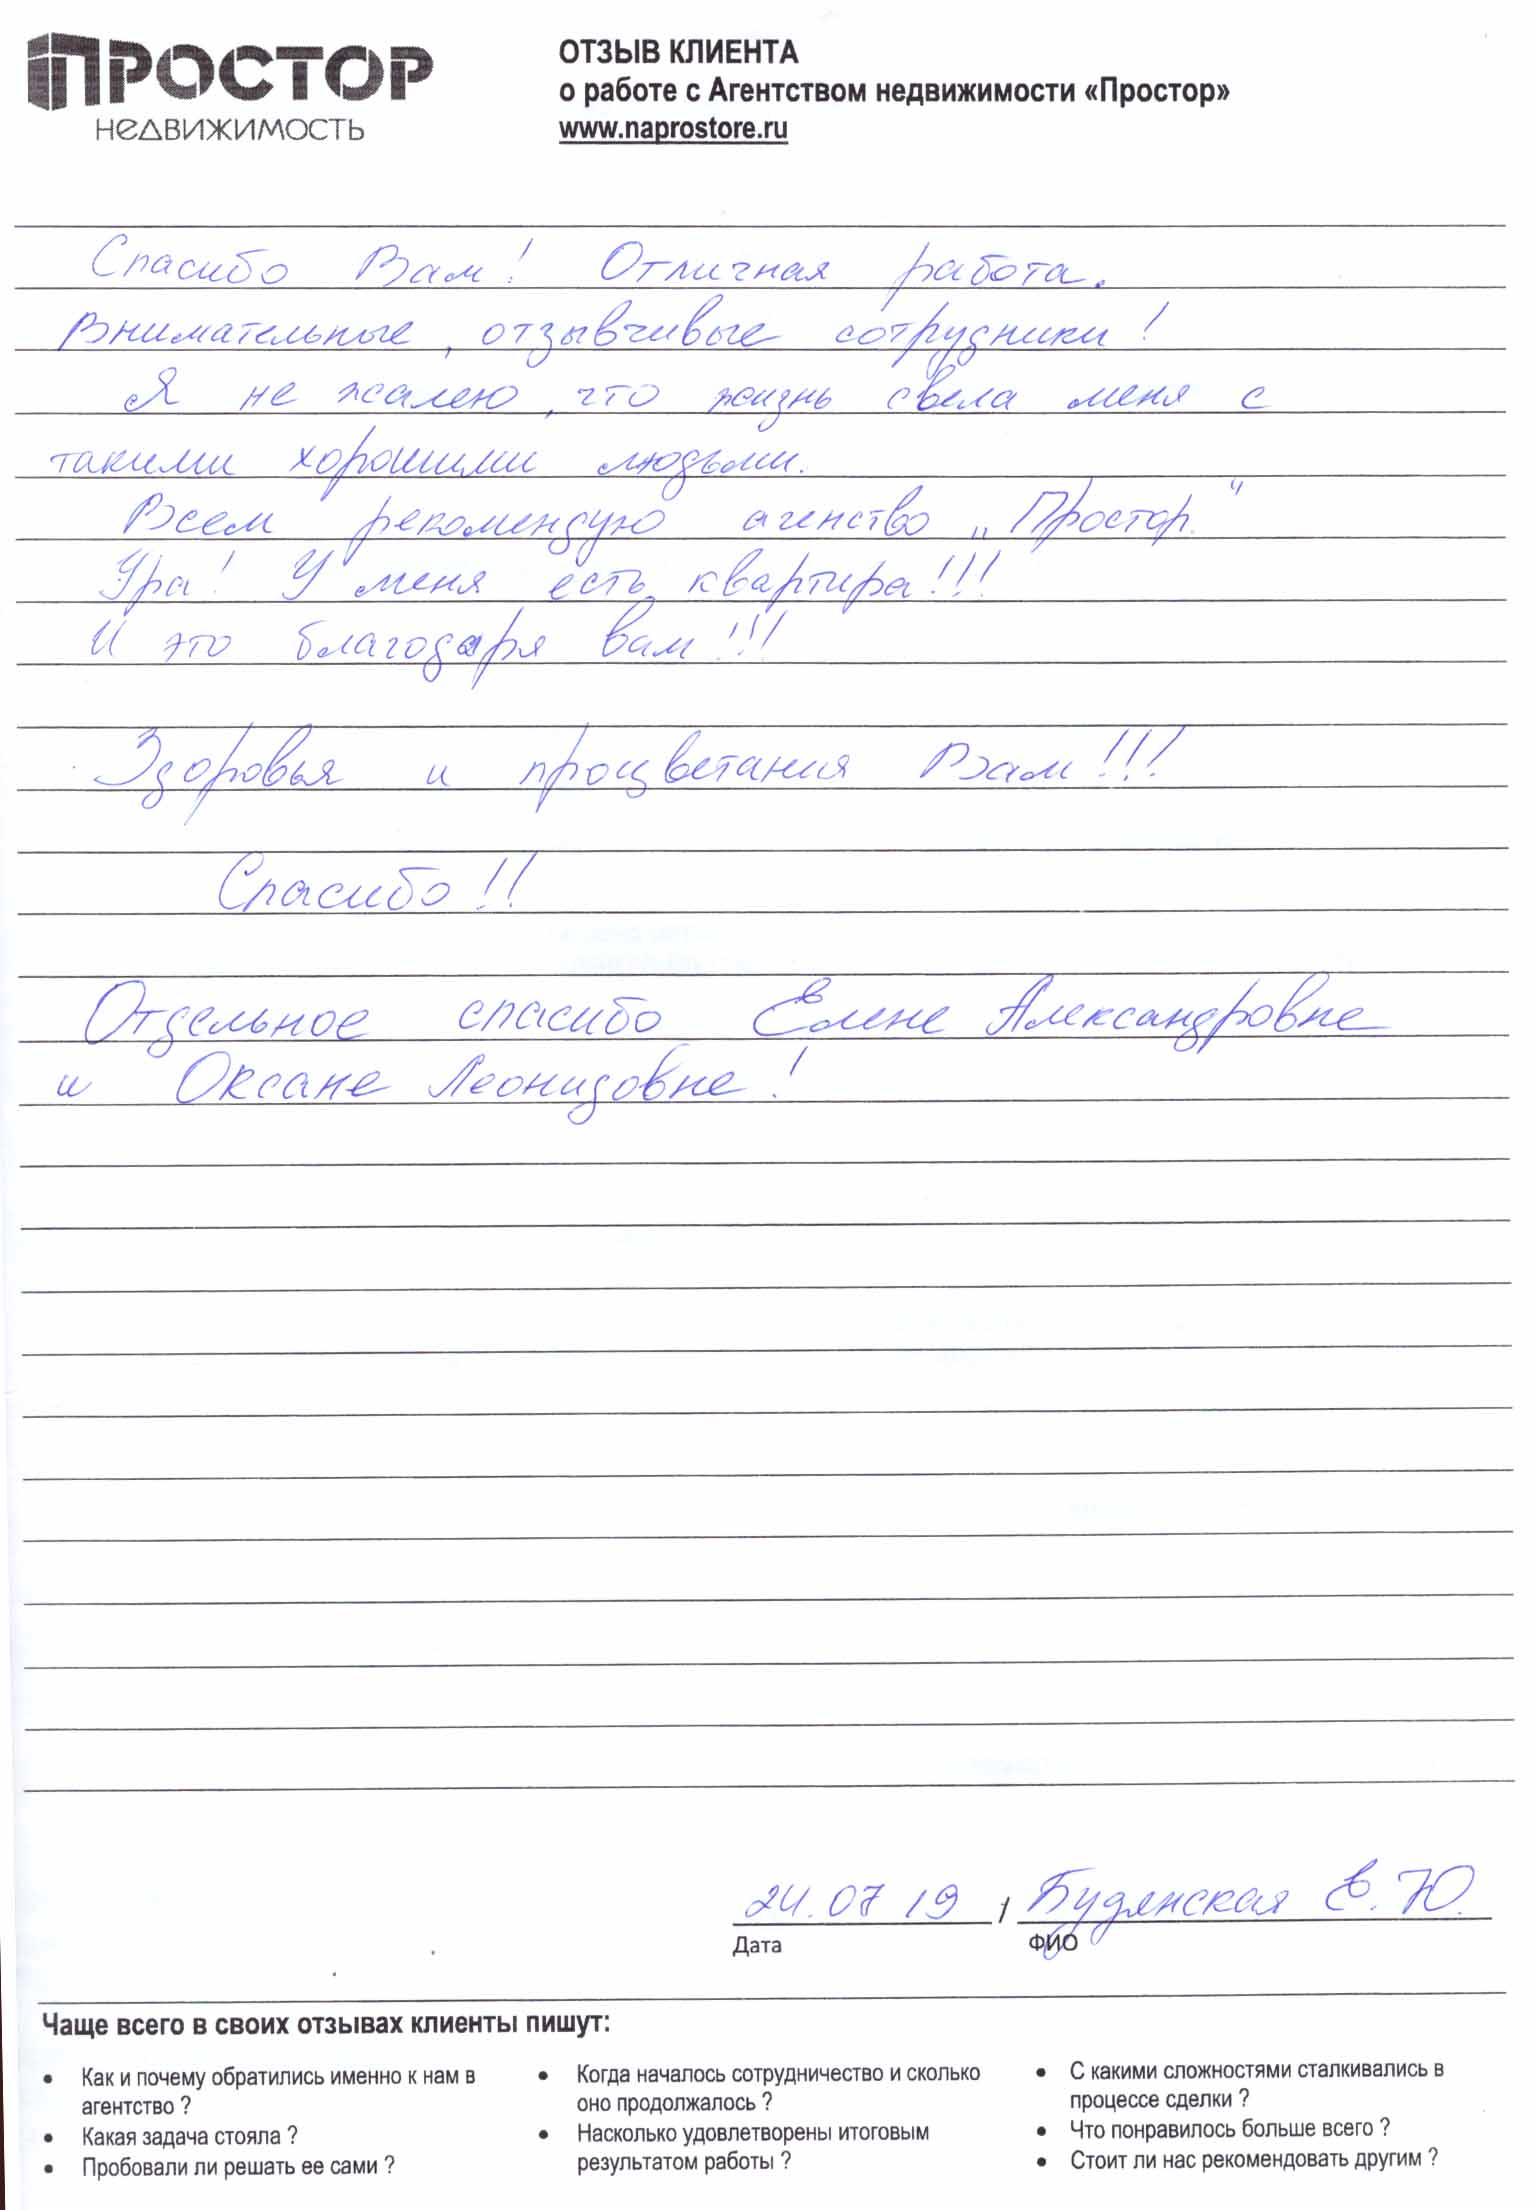 ПРОСТОР
НЕДВИЖИМОСТЬ
ОТЗЫВ КЛИЕНТА
о работе с Агентством недвижимости «Простор»
www.naprostore.ru
Спасибо Вам! Отличная работа.
Внимательные, отзывчивые сотрудники!
Я не жалею, что жизнь свела меня с
такими хорошими людьми.
Всем рекомендую агенство „Простор."
Ура! У меня есть квартира!!!
И это благодаря вам!!!
Здоровья и процветания Вам!!!
Спасибо!!
Отдельное спасибо Елене Александровне
и Оксане Леонидовне!
24.07 19 / Будянская Е.Ю.
Дата ФИО
Чаще всего в своих отзывах клиенты пишут:
• Как и почему обратились именно к нам в
агентство ?
• Какая задача стояла ?
• Пробовали ли решать ее сами ?
• Когда началось сотрудничество и сколько
оно продолжалось ?
• Насколько удовлетворены итоговым
результатом работы ?
• С какими сложностями сталкивались в
процессе сделки ?
• Что понравилось больше всего ?
• Стоит ли нас рекомендовать другим ?